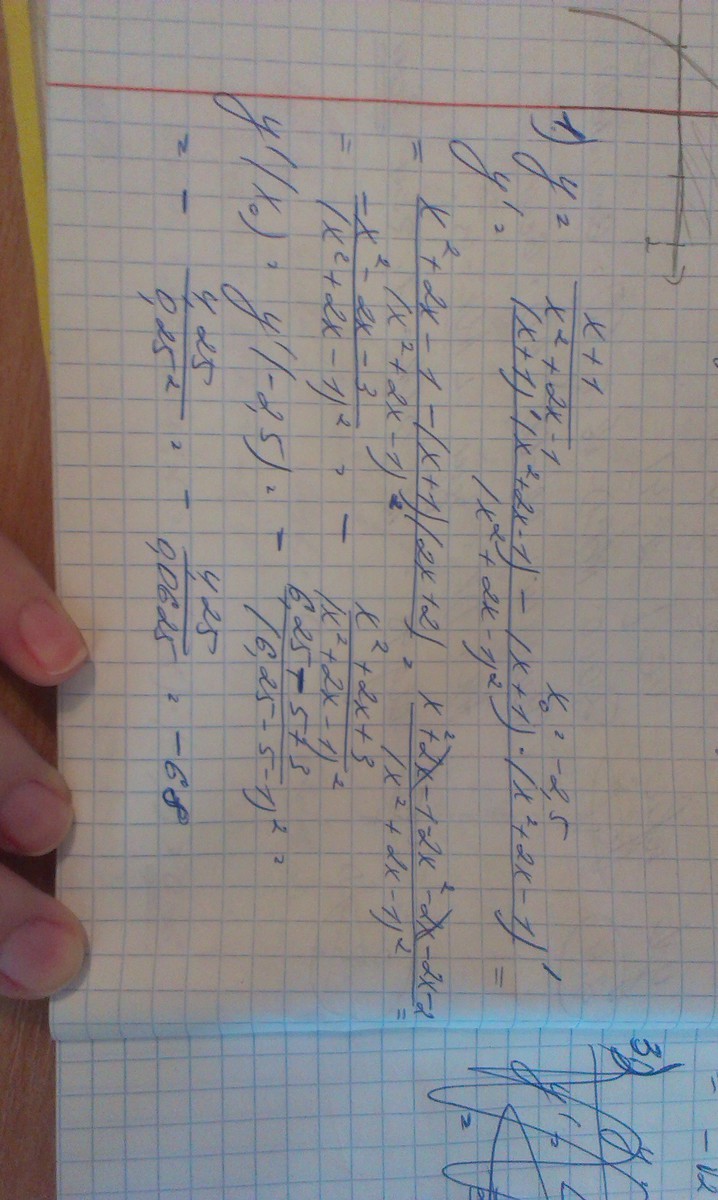 1) y = (x+1)/(x²+2x-1)   x₀ = -2,5
y' = ((x+1)'(x²+2x-1) - (x+1)·(x²+2x-1)')/(x²+2x-1)² =
= (x²+2x-1-(x+1)(2x+2))/(x²+2x-1)² = (x²+2x-1-2x²-2x-2x-2)/(x²+2x-1)² =
= (-x²-2x-3)/(x²+2x-1)² = - (x²+2x+3)/(x²+2x-1)²
y'(x₀) = y'(-2,5) = - (6,25-5+3)/(6,25-5-1)² =
= - 4,25/0,25² = - 4,25/0,0625 = -68
3)
y' =